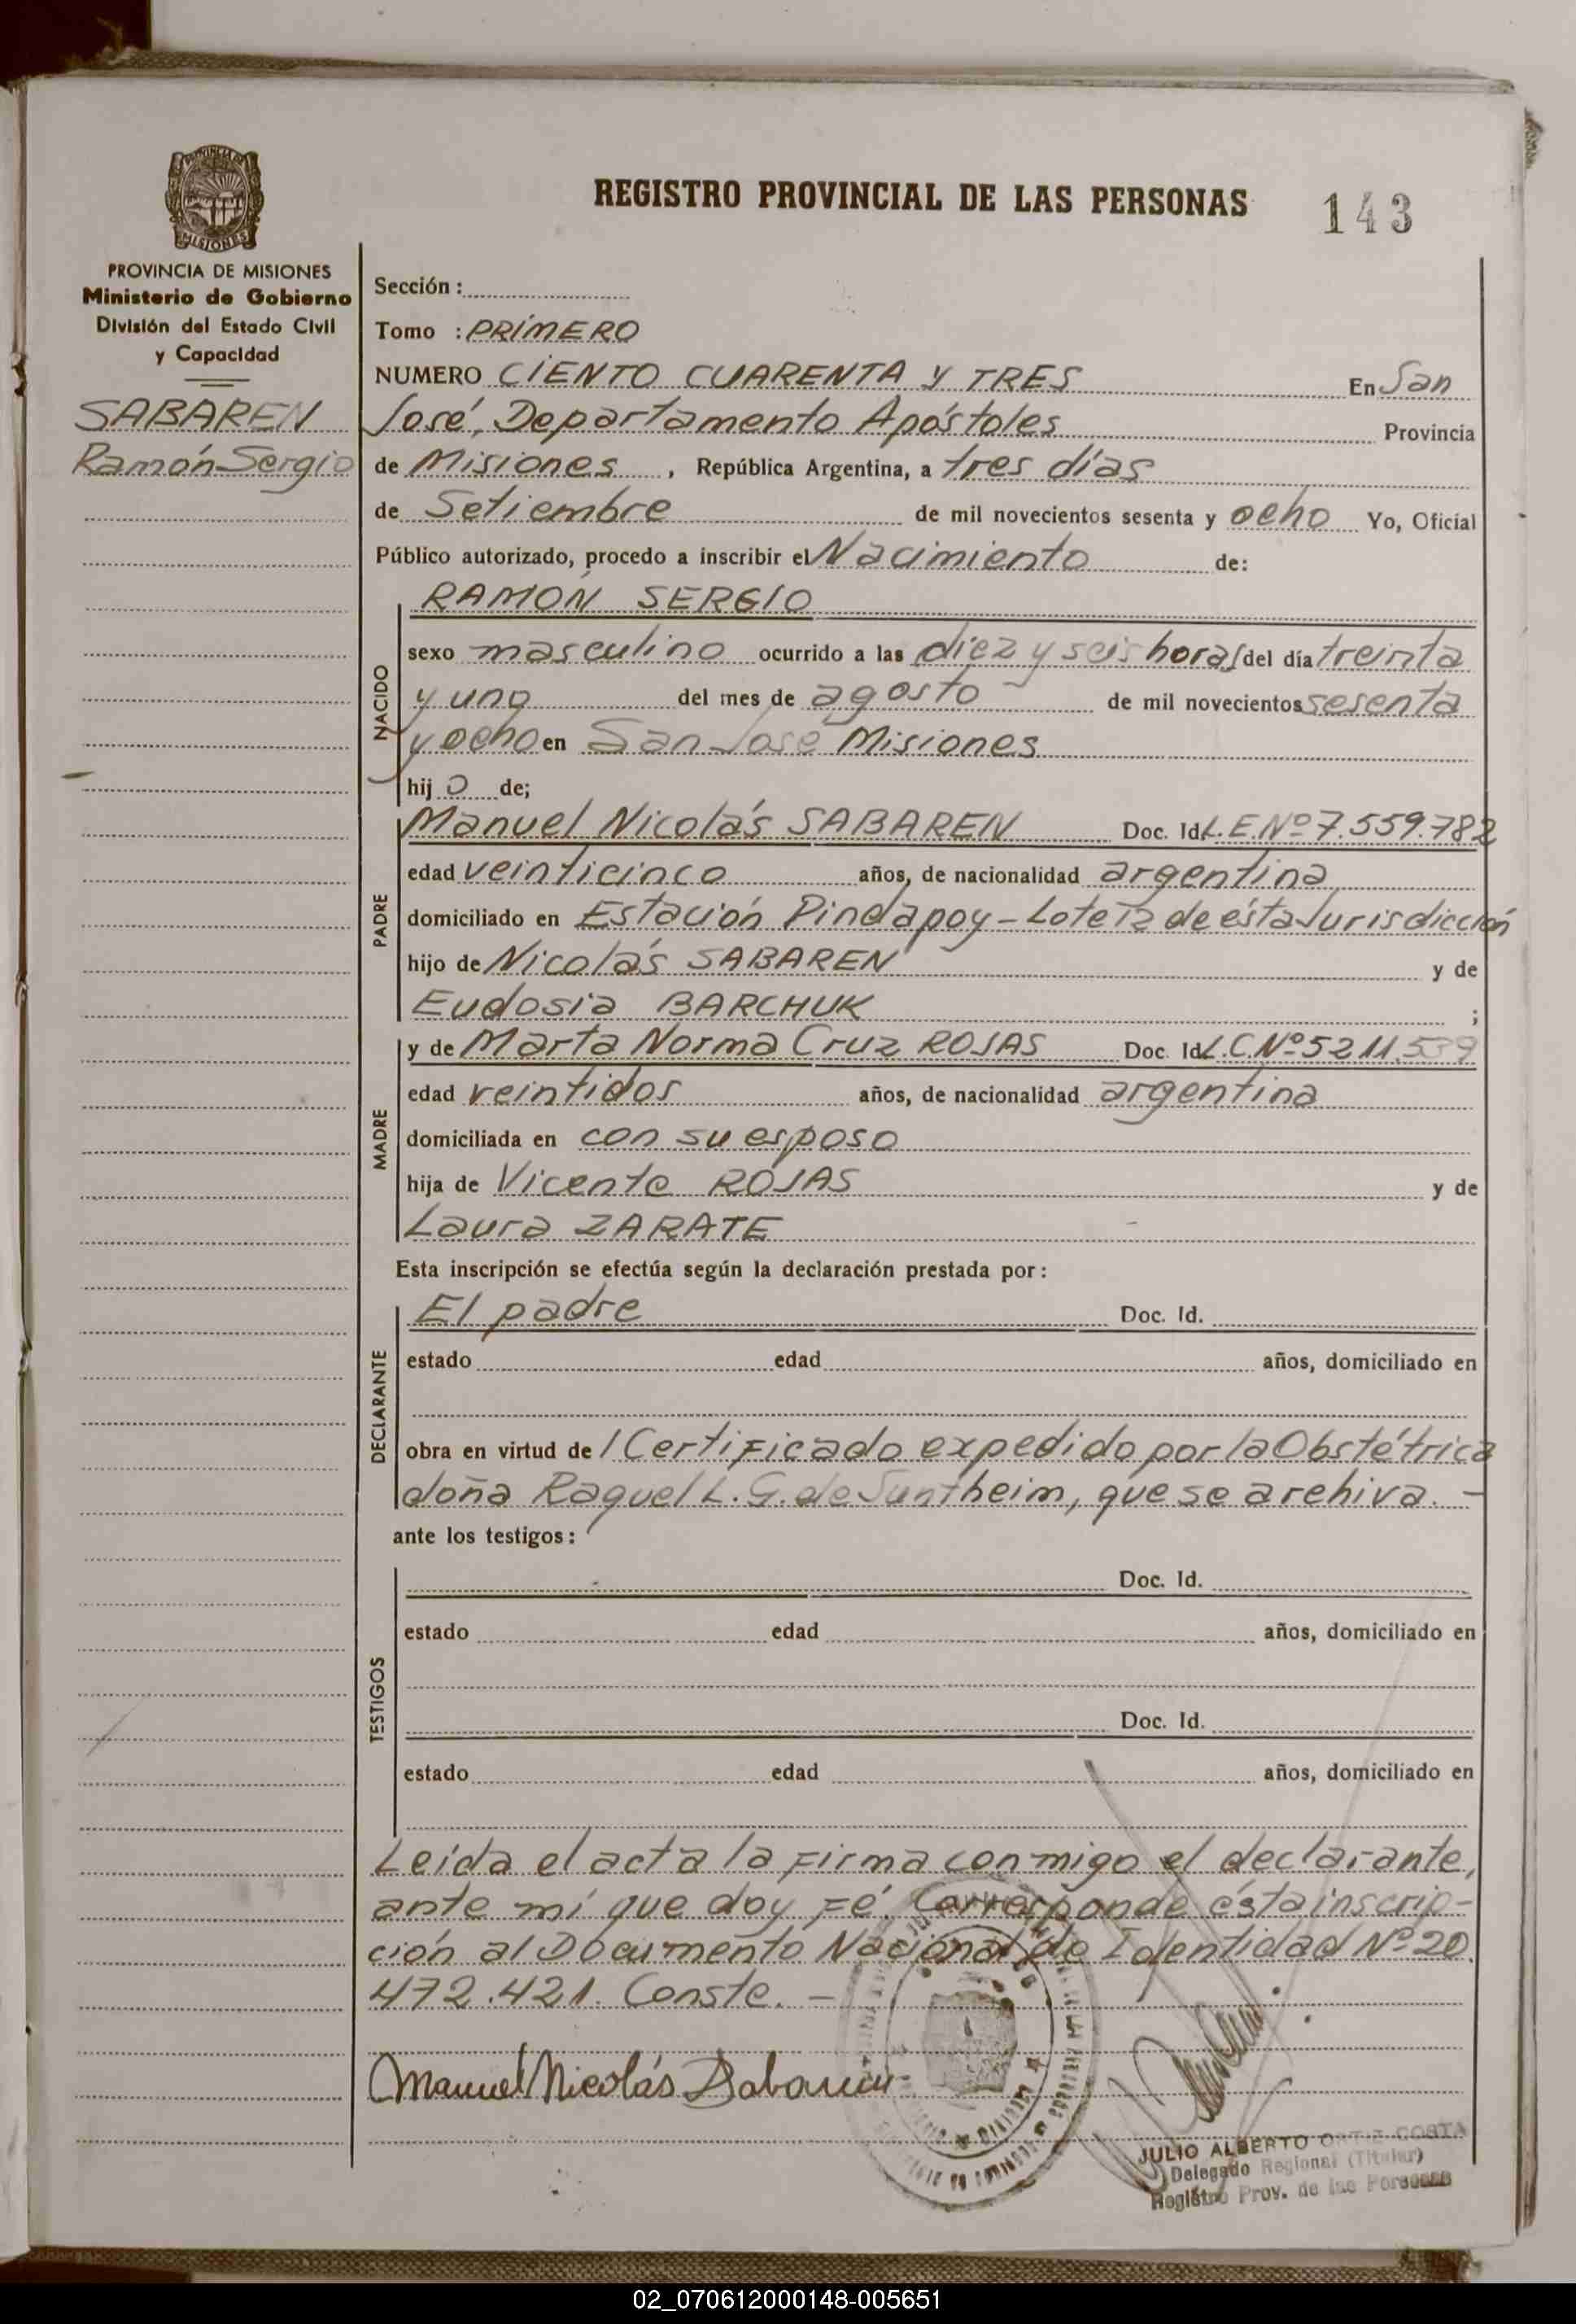 REGISTRO PROVINCIAL DE LAS PERSONAS
143
PROVINCIA DE MISIONES
Ministerio de Gobierno
División del Estado Civil
y Capacidad
SABAREN
Ramón Sergio
Sección :
Tomo : PRIMERO
NUMERO CIENTO CUARENTA Y TRES En San
José, Departamento Apóstoles Provincia
de Misiones , República Argentina, a tres días
de Setiembre de mil novecientos sesenta y ocho Yo, Oficial
Público autorizado, procedo a inscribir el Nacimiento de:
NACIDO
RAMÓN SERGIO
sexo masculino ocurrido a las diez y seis horas del día treinta
y uno del mes de agosto de mil novecientos sesenta
y ocho en San José Misiones
hij o de;
PADRE
Manuel Nicolás SABAREN Doc. Id. L.E.Nº 7.559.782
edad veinticinco años, de nacionalidad argentina
domiciliado en Estación Pindapoy - Lote 12 de ésta Jurisdicción
hijo de Nicolás SABAREN y de
Eudosia BARCHUK ;
MADRE
y de Marta Norma Cruz ROJAS Doc. Id. L.C.Nº 5211.539
edad veintidos años, de nacionalidad argentina
domiciliada en con su esposo
hija de Vicente ROJAS y de
Laura ZARATE
Esta inscripción se efectúa según la declaración prestada por :
DECLARANTE
El padre Doc. Id.
estado edad años, domiciliado en
obra en virtud de 1 Certificado expedido por la Obstétrica
doña Raquel L. G. de Suntheim, que se archiva. -
ante los testigos :
TESTIGOS
Doc. Id.
estado edad años, domiciliado en
Doc. Id.
estado edad años, domiciliado en
Leida el acta la firma conmigo el declarante,
ante mí que doy fé. Corresponde ésta inscrip-
ción al Documento Nacional de Identidad Nº 20.
472.421. Conste. -
Manuel Nicolás Sabaren
JULIO ALBERTO ORTIZ COSTA
Delegado Regional (Titular)
Registro Prov. de las Personas
02_070612000148-005651